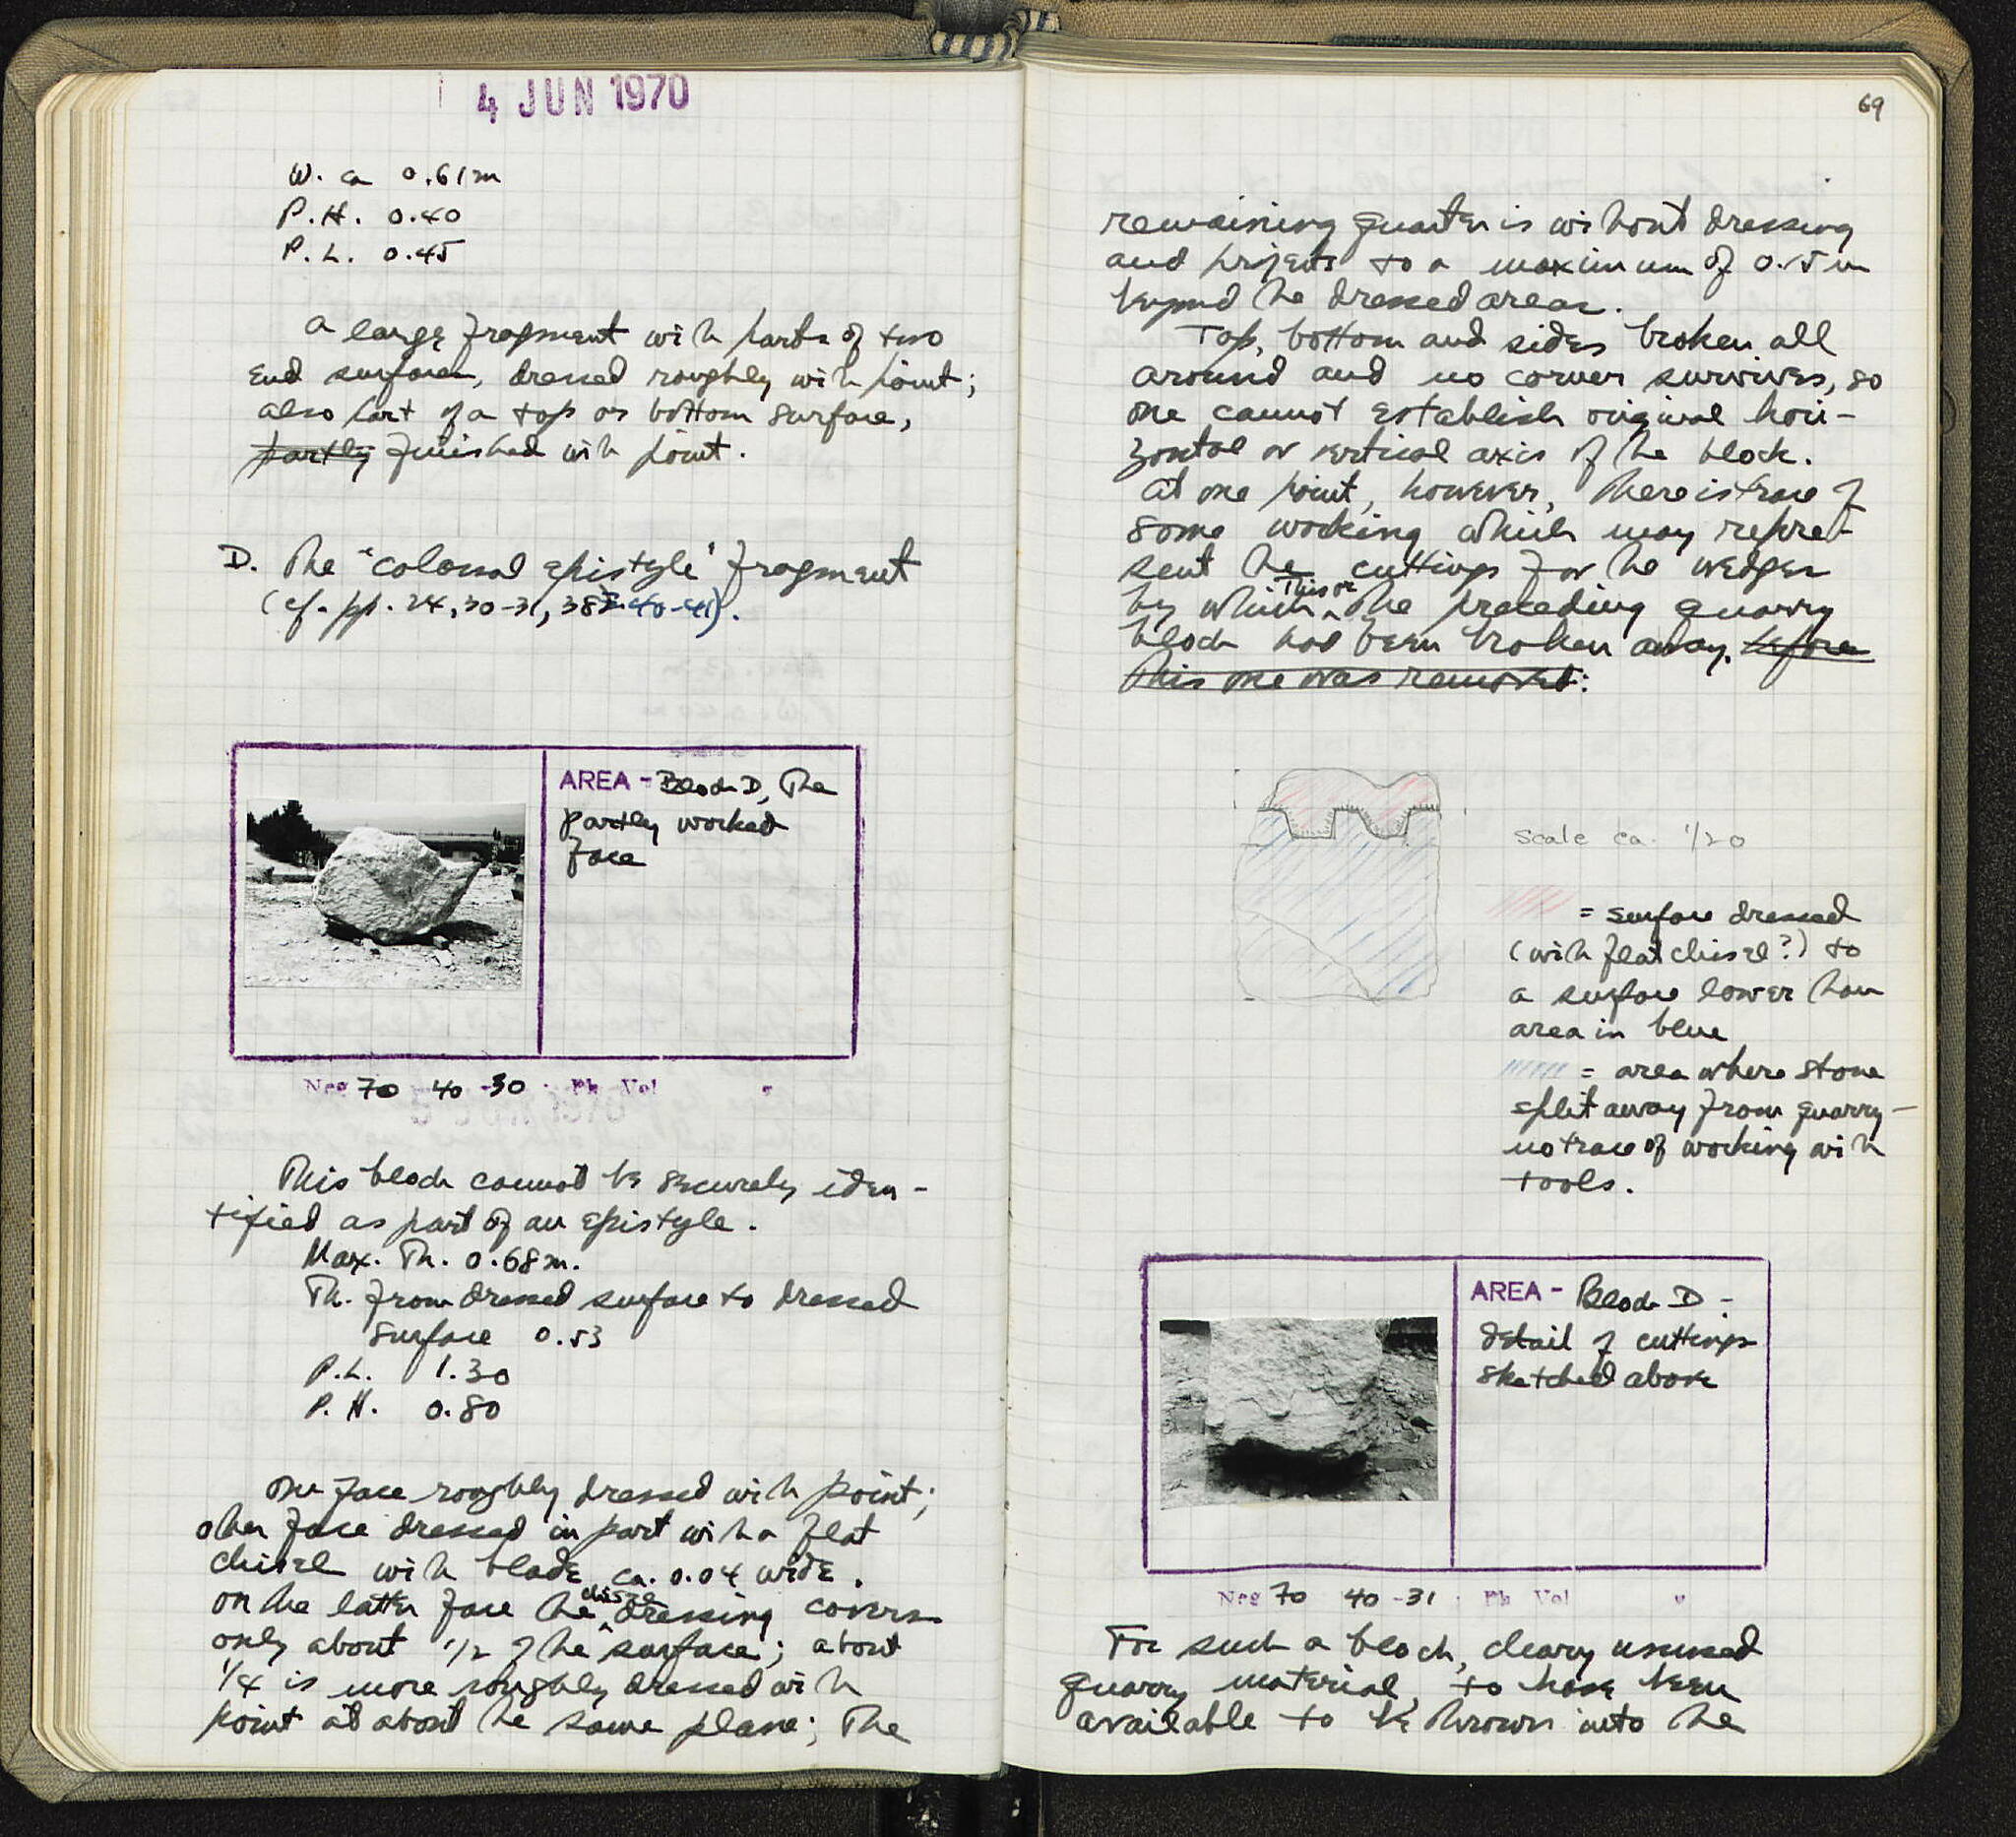 4 JUN 1970
W. ca 0.61m
P.H. 0.40
P.L. 0.45
A large fragment with parts of two
end surfaces, dressed roughly with point;
also part of a top or bottom surface,
partly finished with point.
D. The "colossal epistyle" fragment
(cf. pp. 24, 30-31, 38, 40-41).
AREA - Block D, The
partly worked
face
Neg 70 40 -30 Ph Vol
This block cannot be securely iden-
tified as part of an epistyle.
Max. Th. 0.68m.
Th. from dressed surface to dressed
surface 0.53
P.L. 1.30
P.H. 0.80
One face roughly dressed with point;
other face dressed in part with a flat
chisel with blade ca. 0.04 wide.
On the latter face the chisel dressing covers
only about 1/2 of the surface; about
1/4 is more roughly dressed with
point at about the same plane; the
69
remaining quarter is without dressing
and projects to a maximum of 0.15m
beyond the dressed areas.
Top, bottom and sides broken all
around and no corner survives, so
one cannot establish original hori-
zontal or vertical axis of the block.
At one point, however, there is trace of
some working which may repre-
sent the cuttings for the wedges
by which this or the preceding quarry
block had been broken away. before
this one was removed.
Scale ca. 1/20
= surface dressed
(with flat chisel?) to
a surface lower than
area in blue
= area where stone
split away from quarry -
no trace of working with
tools.
AREA - Block D -
detail of cuttings
sketched above
Neg 70 40 -31 Ph Vol
For such a block, cleary unused
quarry material, to have been
available to be thrown into the